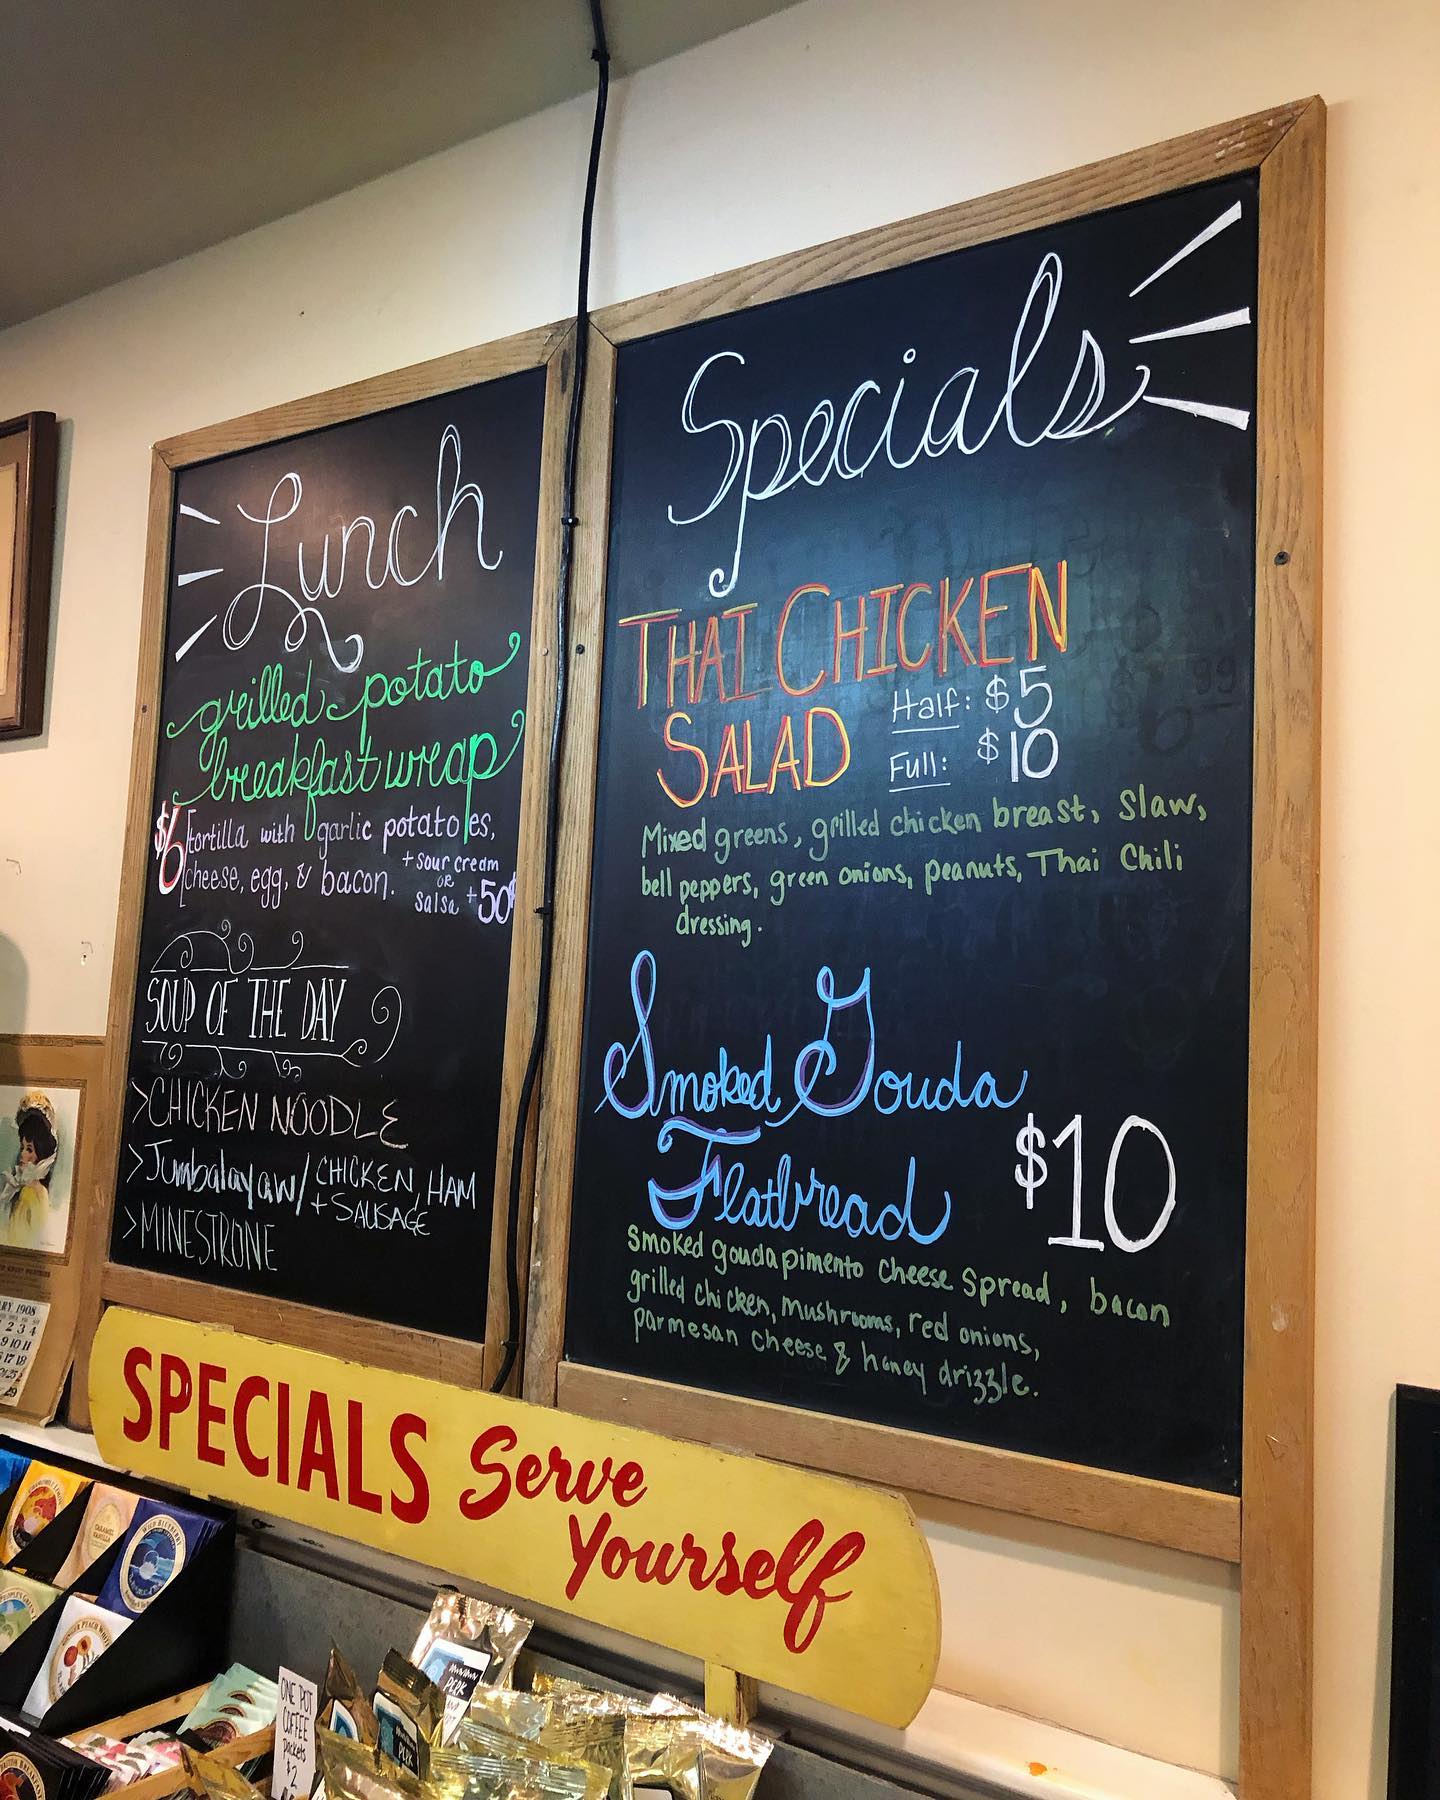 Lunch
grilled potato
breakfast wrap
$6 tortilla with garlic potatoes,
cheese, egg, & bacon.
+sour cream
OR
salsa +50¢
SOUP OF THE DAY
>CHICKEN NOODLE
>Jumbalaya w/ CHICKEN, HAM
+ SAUSAGE
>MINESTRONE
Specials
THAI CHICKEN
SALAD
Half: $5
Full: $10
Mixed greens, grilled chicken breast, Slaw,
bell peppers, green onions, peanuts, Thai Chili
dressing.
Smoked Gouda
Flatbread
$10
Smoked gouda pimento cheese spread, bacon
grilled chicken, mushrooms, red onions,
parmesan cheese & honey drizzle.
SPECIALS Serve
Yourself
ARY 1908
2 3 4
9 10 11
16 17 18
29
CARAMEL
VANILLA
WILD BLUEBERRY
GINGER PEACH
PERK
PERK
ONE POT
COFFEE
packets
$2